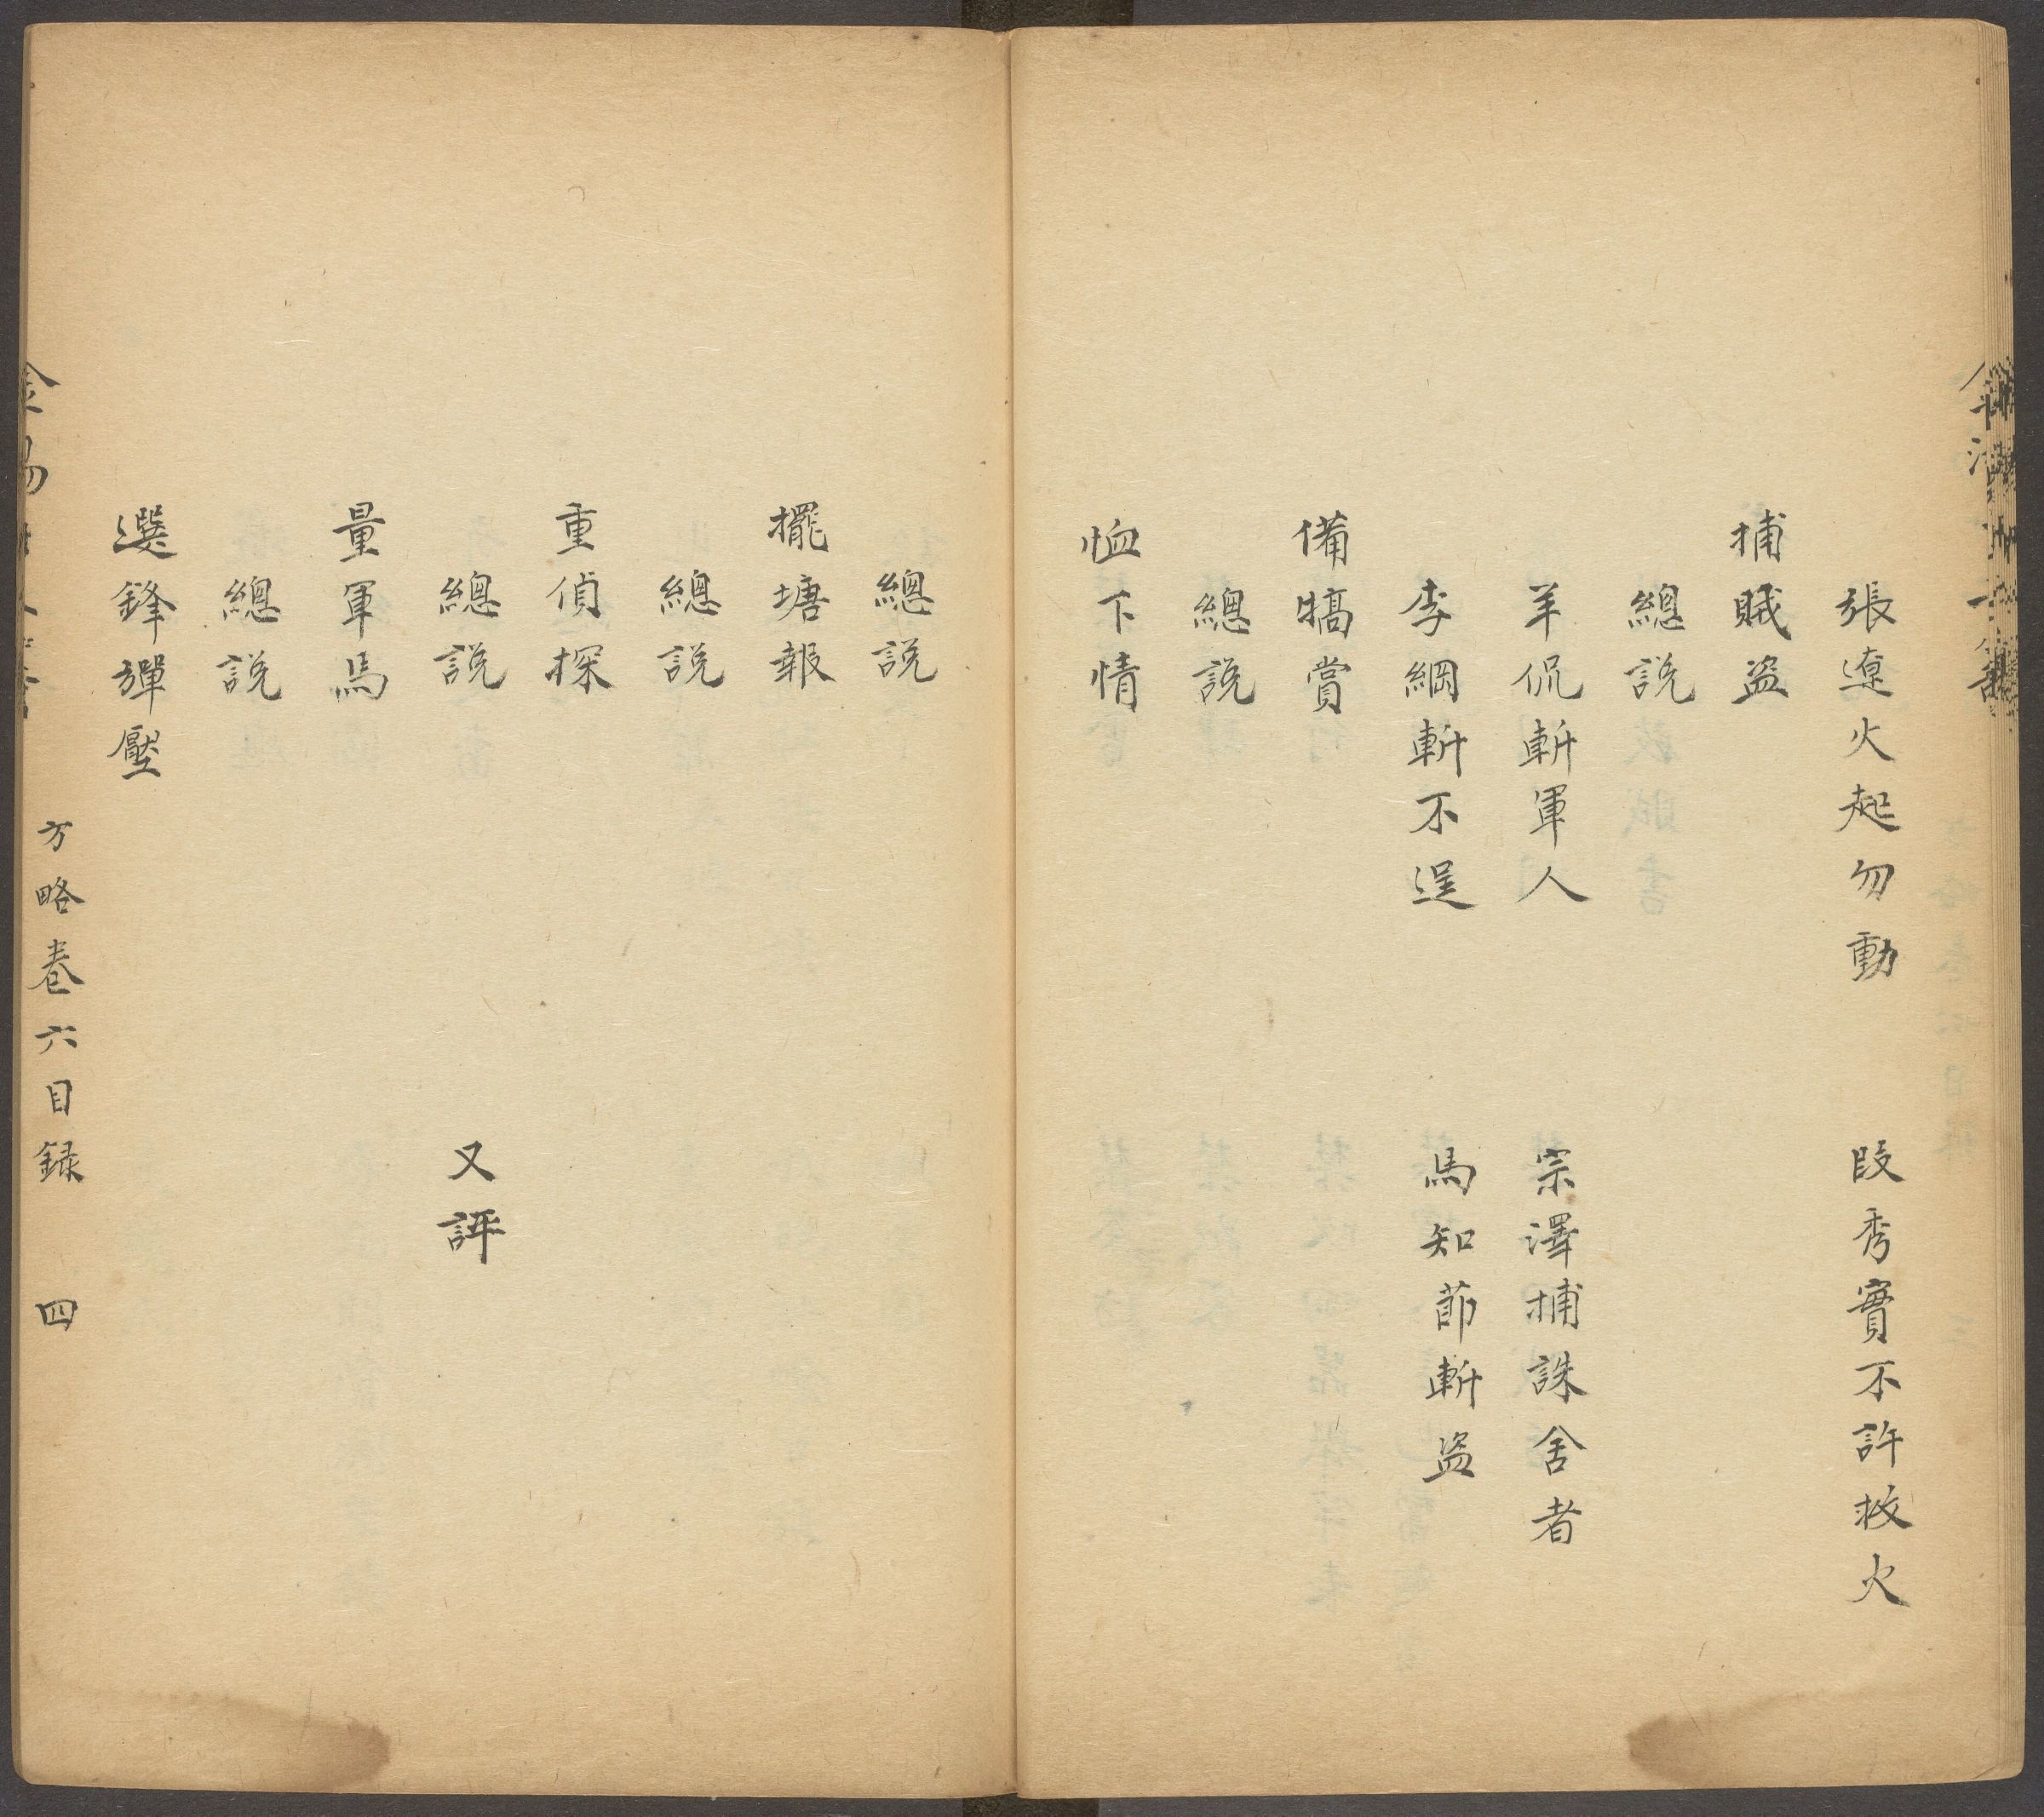 張遼火起勿動 段秀實不許救火
捕賊盜
總說
羊侃斬軍人 宗澤捕誅舍者
李綱斬不逞 馬知節斬盜
備犒賞
總說
恤下情
總說
擺塘報
總說
重偵探
總說 又評
量軍馬
總說
選鋒彈壓
方略卷六目録 四